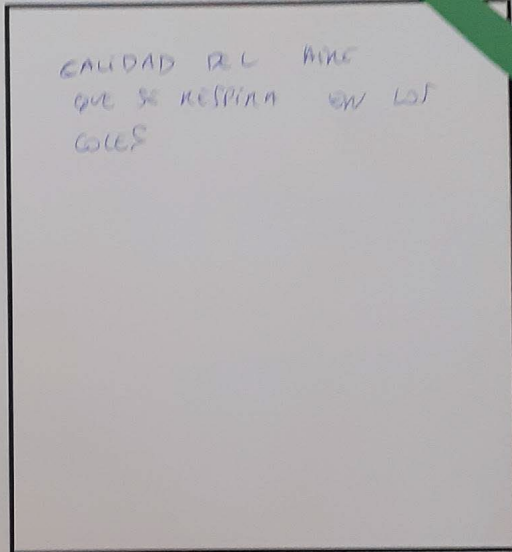 CALIDAD DEL AIRE
QUE SE RESPIRA EN LOS
COLES